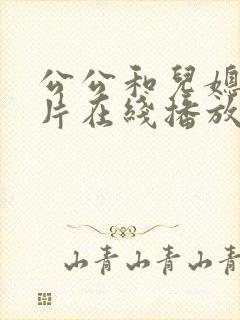 公公和兒媳
片在綫播放
山青山青山青